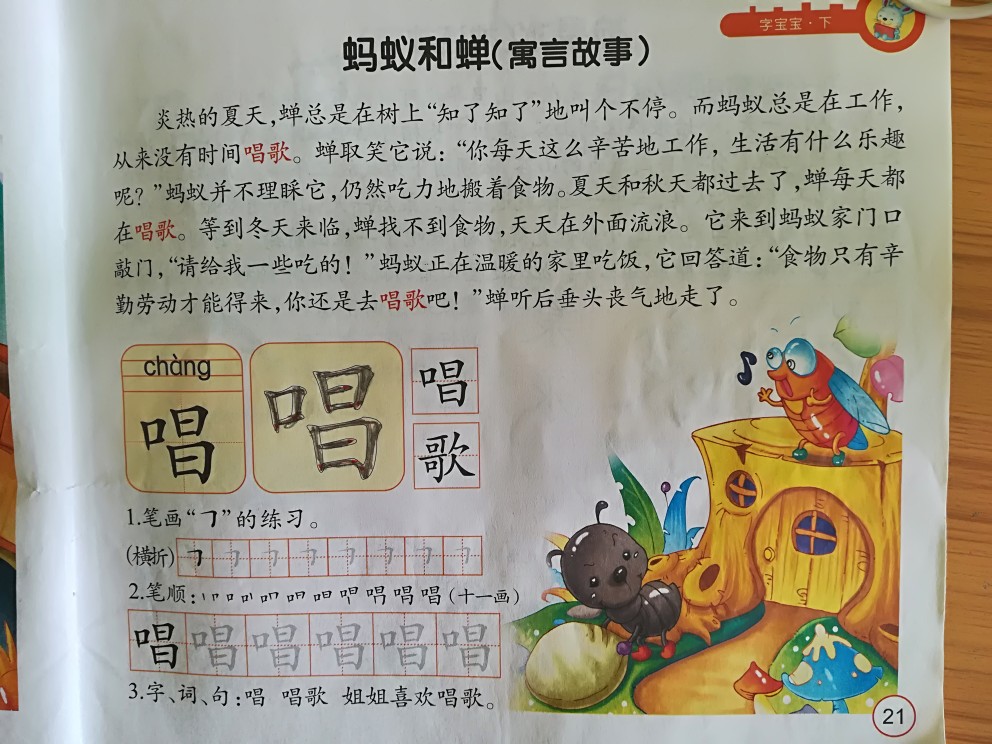 字宝宝·下
蚂蚁和蝉(寓言故事)
炎热的夏天,蝉总是在树上“知了知了”地叫个不停。而蚂蚁总是在工作,
从来没有时间唱歌。蝉取笑它说:“你每天这么辛苦地工作,生活有什么乐趣
呢?”蚂蚁并不理睬它,仍然吃力地搬着食物。夏天和秋天都过去了,蝉每天都
在唱歌。等到冬天来临,蝉找不到食物,天天在外面流浪。它来到蚂蚁家门口
敲门,“请给我一些吃的!”蚂蚁正在温暖的家里吃饭,它回答道:“食物只有辛
勤劳动才能得来,你还是去唱歌吧!”蝉听后垂头丧气地走了。
chàng
唱
唱
唱
歌
1.笔画“𠃍”的练习。
(横折) 𠃍 𠃍 𠃍 𠃍 𠃍 𠃍 𠃍 𠃍
2.笔顺: (十一画)
唱 唱 唱 唱 唱 唱
3.字、词、句:唱 唱歌 姐姐喜欢唱歌。
21